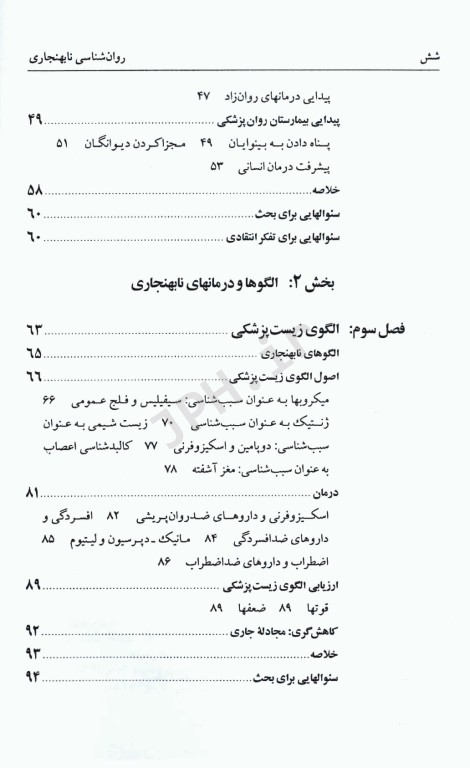 شش روان‌شناسی نابهنجاری
پیدایی درمانهای روان‌زاد ۴۷
پیدایی بیمارستان روان‌پزشکی ۴۹
پناه دادن به بینوایان ۴۹ مجزاکردن دیوانگان ۵۱
پیشرفت درمان انسانی ۵۳
خلاصه ۵۸
سئوالهایی برای بحث ۶۰
سئوالهایی برای تفکر انتقادی ۶۰
بخش ۲: الگوها و درمانهای نابهنجاری
فصل سوم: الگوی زیست‌پزشکی ۶۳
الگوهای نابهنجاری ۶۵
اصول الگوی زیست‌پزشکی ۶۶
میکروبها به عنوان سبب‌شناسی: سیفیلیس و فلج عمومی ۶۶
ژنتیک به عنوان سبب‌شناسی ۷۰ زیست شیمی به عنوان
سبب‌شناسی: دوپامین و اسکیزوفرنی ۷۷ کالبدشناسی اعصاب
به عنوان سبب‌شناسی: مغز آشفته ۷۸
درمان ۸۱
اسکیزوفرنی و داروهای ضدروان‌پریشی ۸۲ افسردگی و
داروهای ضدافسردگی ۸۴ مانیک ـ دپرسیون و لیتیوم ۸۵
اضطراب و داروهای ضداضطراب ۸۶
ارزیابی الگوی زیست‌پزشکی ۸۹
قوتها ۸۹ ضعفها ۸۹
کاهش‌گری: مجادلهٔ جاری ۹۲
خلاصه ۹۳
سئوالهایی برای بحث ۹۴
JPH.ir